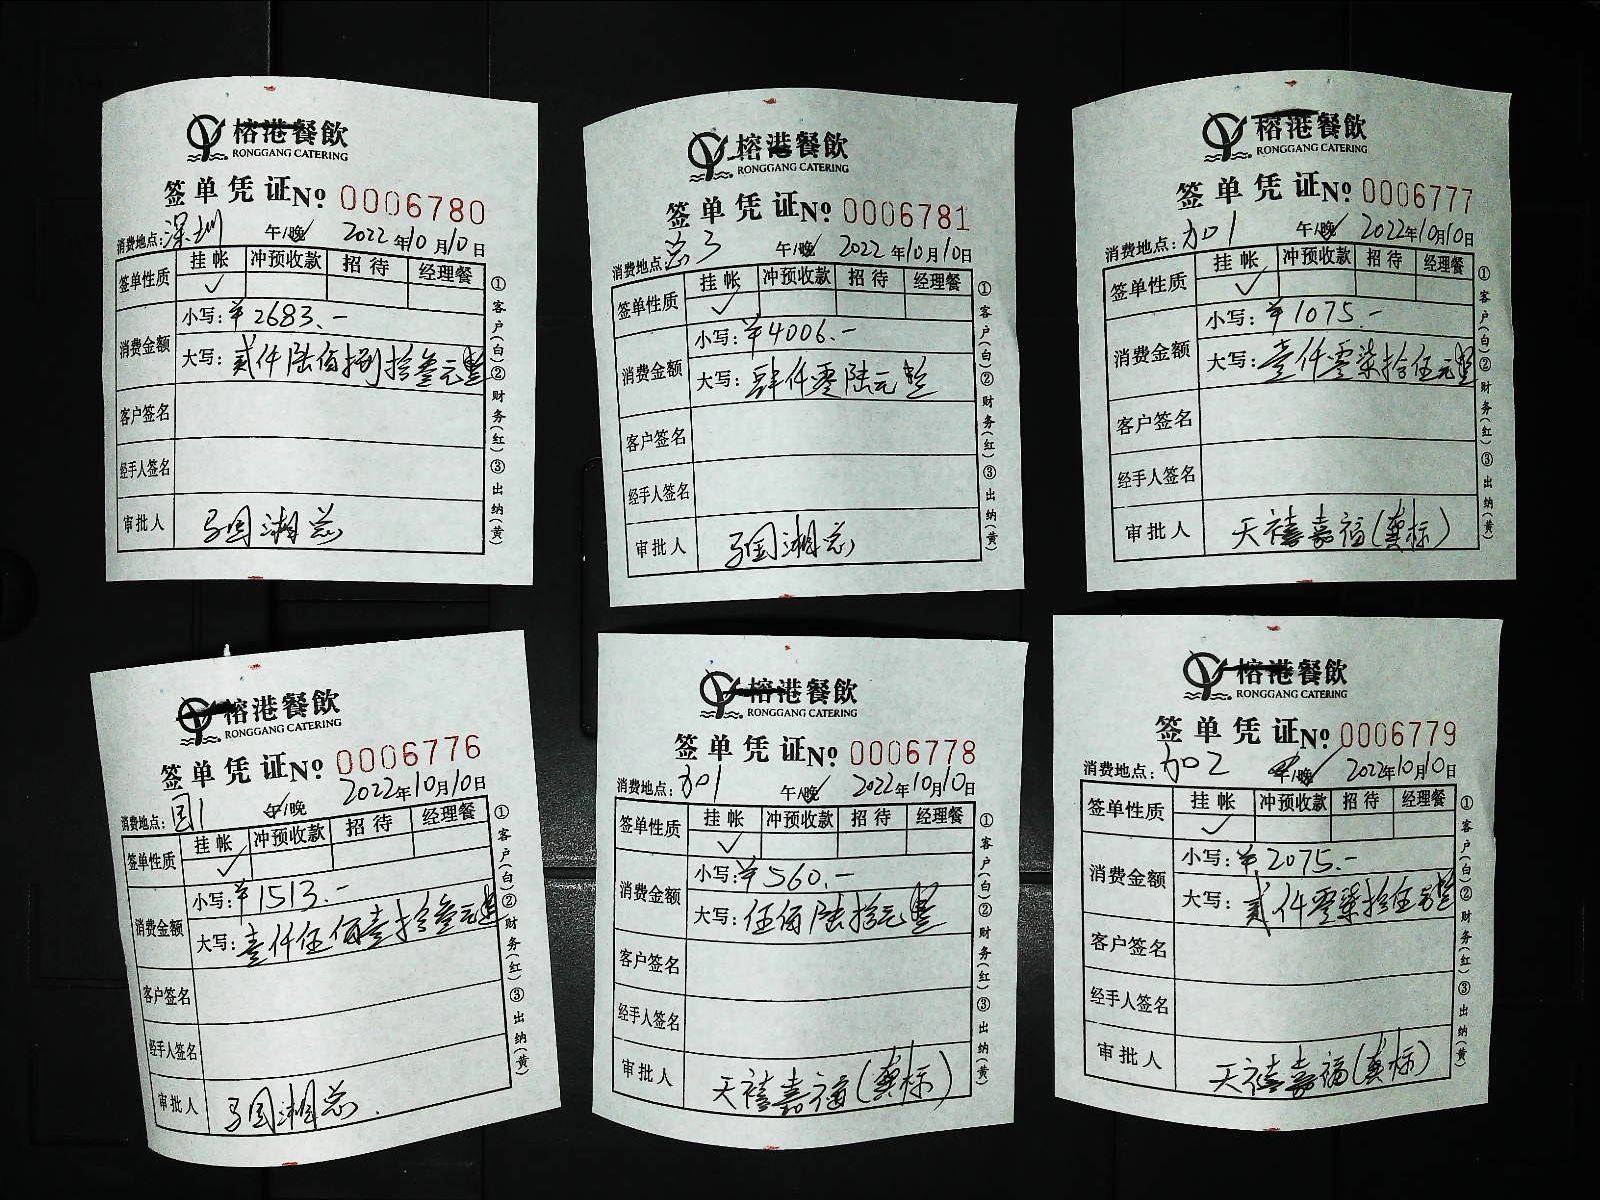 榕港餐飲
RONGGANG CATERING
签单凭证 No 0006780
消费地点:深圳 午/晚 2022年10月10日
签单性质 挂帐 冲预收款 招待 经理餐
✓
消费金额 小写:¥2683.-
大写:贰仟陆佰捌拾叁元整
客户签名
经手人签名
审批人 马国湘总
①客户(白)②财务(红)③出纳(黄)
榕港餐飲
RONGGANG CATERING
签单凭证 No 0006781
消费地点:总3 午/晚 2022年10月10日
签单性质 挂帐 冲预收款 招待 经理餐
✓
消费金额 小写:¥4006.-
大写:肆仟零陆元整
客户签名
经手人签名
审批人 马国湘总
①客户(白)②财务(红)③出纳(黄)
榕港餐飲
RONGGANG CATERING
签单凭证 No 0006777
消费地点:加1 午/晚 2022年10月10日
签单性质 挂帐 冲预收款 招待 经理餐
✓
消费金额 小写:¥1075.-
大写:壹仟零柒拾伍元整
客户签名
经手人签名
审批人 天禧嘉福(龚标)
①客户(白)②财务(红)③出纳(黄)
榕港餐飲
RONGGANG CATERING
签单凭证 No 0006776
消费地点:国1 午/晚 2022年10月10日
签单性质 挂帐 冲预收款 招待 经理餐
✓
消费金额 小写:¥1513.-
大写:壹仟伍佰壹拾叁元整
客户签名
经手人签名
审批人 马国湘总.
①客户(白)②财务(红)③出纳(黄)
榕港餐飲
RONGGANG CATERING
签单凭证 No 0006778
消费地点:加1 午/晚 2022年10月10日
签单性质 挂帐 冲预收款 招待 经理餐
✓
消费金额 小写:¥560.-
大写:伍佰陆拾元整
客户签名
经手人签名
审批人 天禧嘉福(龚标)
①客户(白)②财务(红)③出纳(黄)
榕港餐飲
RONGGANG CATERING
签单凭证 No 0006779
消费地点:加2 午/晚 2022年10月10日
签单性质 挂帐 冲预收款 招待 经理餐
✓
消费金额 小写:¥2075.-
大写:贰仟零柒拾伍元整
客户签名
经手人签名
审批人 天禧嘉福(龚标)
①客户(白)②财务(红)③出纳(黄)